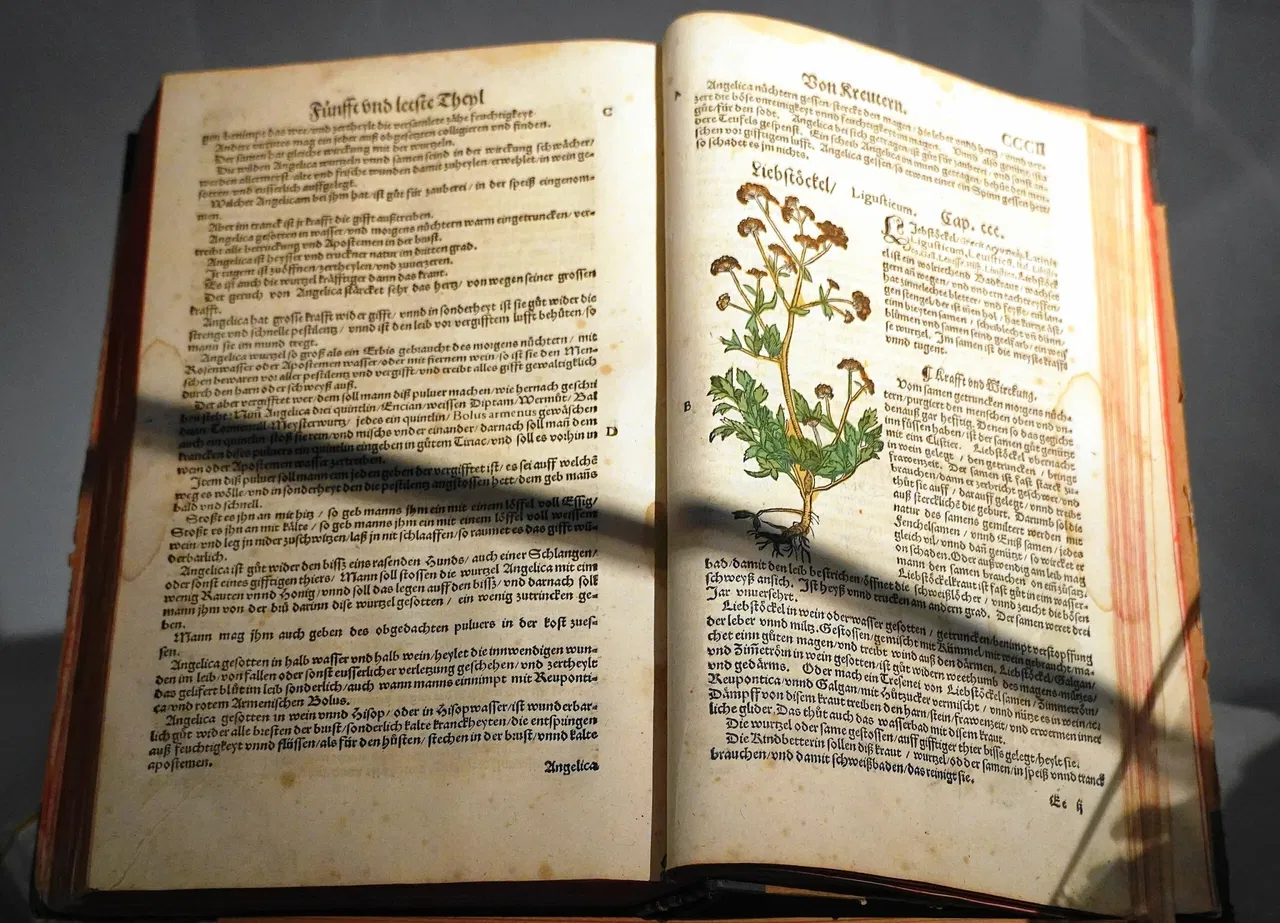 Fünffte vnd letste Theyl
C
gen benimpt das wee/vnd zertheylt die versamlete zähe feuchtigkeyt
Andere virtutes mag ein jeder auß obgesetzten colligieren vnd finden.
Der samen hat gleiche wirckung mit der wurtzeln.
Die wilden Angelica wurtzeln vnnd samen seind in der wirckung schwächer/
werden allermeyst/alte vnd frische wunden damit zuheylen/erwehlet/in wein ge-
sotten vnd eusserlich auffgelegt.
Welcher Angelicam bei jhm hat/ist gůt für zauberei/in der speiß eingenom-
men.
Aber im tranck ist jr krafft die gifft außtreiben.
Angelica gesotten in wasser/vnd morgens nüchtern warm eingetruncken/ver-
treibt alle betruckung vnd Apostemen in der brust.
Angelica ist heysser vnd truckner natur im dritten grad.
Jr tugent ist zuöffnen/zertheylen/vnd zuverzeren.
Es ist auch die wurtzel kräfftiger dann das kraut.
Der geruch von Angelica stärcket sehr das hertz/von wegen seiner grossen
krafft.
Angelica hat grosse krafft wider gifft/vnnd in sonderheyt ist sie gůt wider die
strenge vnd schnelle pestilentz/vnnd ist den leib vor vergifftem lufft behůten/so
mann sie im mund tregt.
Angelica wurtzel so groß als ein Erbis gebraucht des morgens nüchtern/mit
Rosenwasser oder Apostemen wasser/oder mit fiernem wein/so ist sie den Men-
schen bewaren vor aller pestilentz vnd vergifft/vnd treibt alles gifft gewaltiglich
durch den harn oder schweyß auß.
Der aber vergifftet wer/dem soll mann diß puluer machen/wie hernach geschri
ben steht: Nim Angelica drei quintlin/Encian/weissen Diptam/Wermůt/Bal
drian/Tormentill/Meysterwurtz/jedes ein quintlin/Bolus armenus gewäschen
auch ein quintlin/stoß sie rein/vnd mischs vnder einander/darnach soll mañ dem
D
krancken dises puluers ein quintlin eingeben in gůtem Tiriac/vnd soll es vorhin in
wein oder Apostemen wasser zertreiben.
Item diß puluer soll mann eim jeden geben der vergifftet ist/es sei auff welchẽ
weg es wölle/vnd in sonderheyt den die pestilentz angstossen hett/dem geb mañs
bald vnd schnell.
Stoßt es jhn an mit hitz/so geb manns jhm ein mit einem löffel voll Essig/
Stoßt es jhn an mit kälte/so geb manns jhm ein mit einem löffel voll weissem
wein/vnd leg jn nider zuschwitzen/laß jn nit schlaaffen/so raumet es das gifft wů-
derbarlich.
Angelica ist gůt wider den bissz eins rasenden Hunds/auch einer Schlangen/
oder sonst eines gifftigen thiers/Mann soll stossen die wurtzel Angelica mit eim
wenig Rauten vnnd Honig/vnnd soll das legen auff den bissz/vnd darnach soll
mann jhm von der brů darinn dise wurtzel gesotten/ein wenig zutrincken ge-
ben.
Mann mag jhm auch geben des obgedachten puluers in der kost zuess-
sen.
Angelica gesotten in halb wasser vnd halb wein/heylet die innwendigen wun-
den im leib/von fallen oder sonst eusserlicher verletzung geschehen/vnd zertheylt
das gelifert blůt im leib sonderlich/auch wann manns einnimpt mit Reuponti-
ca/vnd rotem Armenischen Bolus.
Angelica gesotten in wein vnnd Hisop/oder in Hisopwasser/ist wunderbar-
lich gůt wider alle bresten der brust/sonderlich kalte kranckheyten/die entspringen
auß feuchtigkeyt vnnd flüssen/als für den hůsten/stechen in der brust/vnnd kalte
apostemen.
Angelica
Von Kreutern.
CCCII
A
Angelica nüchtern gessen/stercket den magen/die leber vnnd hertz/vnnd ver-
zert die böse vnreinigkeyt vnnd feuchtigkeyt im magen.
gůt/für den sodt. Angelica bei sich getragen ist gůt für zauberei/vnd sonst an-
dere Teufels gespenst. Ein scheib Angelica im mund getragen/behůt den men-
schen vor gifftigem lufft. Angelica gessen/so etwan einer ein Spinn gessen hett/
so schadet es jm nichts.
Liebstöckel/ Ligusticum. Cap. ccc.
Liebstöckel
Ligusticum, Leuisticũ
Liebstöckel
el ist ein wolriechend Bawkraut/wachset
gern an wegen/vnd vndern tachtreyffen/
hat zinnelechte bletter/vnd seyßt/ein lan
gen stengel/der ist innen hol/hat kurtze äst/
einn breyten samen/scheiblecht vñ dünn/
blůmen vnd samen seind geelfarb/ein weis
se wurtzel. Im samen ist die meyste krafft
vnnd tugent.
¶ Krafft vnd Wirckung.
B
Vom samen getruncken morgens nůch-
tern/purgiert den menschen oben vnd vn-
denauß gar hefftig. Denen so das gegicht
inn füssen haben/ist der samen gůt genützt
mit eim Clistier. Liebstöckel übernacht
in wein gelegt/den getruncken/bringt
frawenzeit. Der samen ist fast starck zu-
brauchen/dann er zerbricht geschwer/vnd
thůt sie auff/darauff gelegt/vnd treibt
auß sterckliche die geburt. Darumb sol dise
natur des samens gemiltert werden mit
Fenchelsamen/vnnd Eniß samen/jedes
gleich vil/vnnd dañ genützt/so wircket er
on schaden. Oder außwendig am leib mag
mann den samen brauchen on eim zusatz.
Liebstöckelkraut ist fast gůt in eim wasser-
bad/damit den leib bestrichen/öffnet die schweißlöcher/vnnd zeucht die bösen
schweyß ansich. Ist heyß vnnd trucken am andern grad. Der samen weret drei
Jar vnuersehrt.
Liebstöckel in wein oder wasser gesotten/getruncken/benimpt verstopffung
der leber vnnd miltz. Gestossen/gemischt mit Kümmel/mit wein gebraucht/ma-
chet einn gůten magen/vnd treibt wind auß den därmen. Liebstöckel/Galgan/
vnd Zimetrörn in wein gesotten/ist gůt widern weethumb des magens/miltzes/
vnd gedärms. Oder mach ein Tresenei von Liebstöckel samen/Zimmetrörn/
Reupontica/vnnd Galgan/mit Hützucker vermischt/vnnd nütze es in wein/etc.
Dämpff von disem kraut treiben den harn/stein/frawenzeit/vnd erwermen inner
liche glider. Das thůt auch das wasserbad mit disem kraut.
Die wurtzel oder same gestossen/auff gifftiger thier bissz gelegt/heylt sie.
Die Kindbetterin sollen diß kraut/wurtzel/oder samen/in speiß vnnd tranck
brauchen/vnd damit schweißbaden/das reinigt sie.
Ee ij